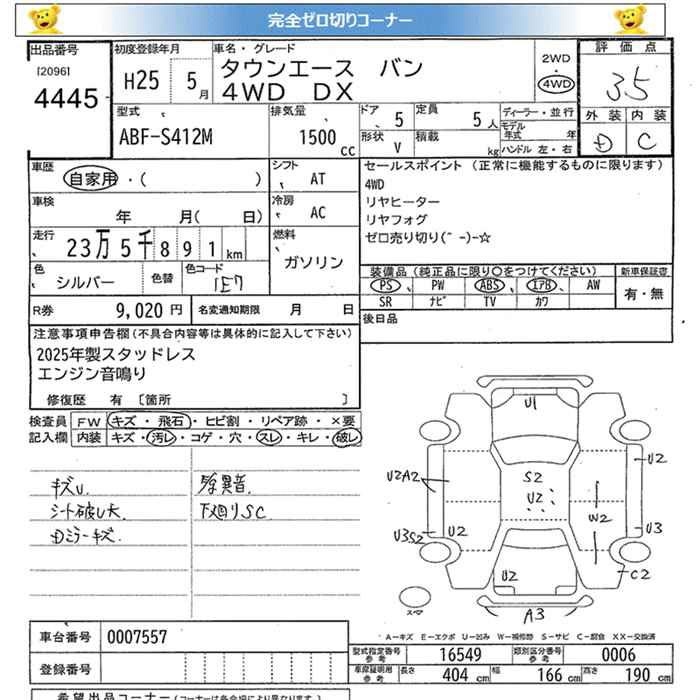 完全ゼロ切りコーナー
出品番号
[2096]
4445
初度登録年月
H25
5月
車名・グレード
タウンエース バン
4WD DX
2WD
・
4WD
評価点
3.5
外装 内装
D C
型式
ABF-S412M
排気量
1500 cc
ドア
5
定員
5人
形状
V
積載
kg
ディーラー・並行
モデル年式
年
ハンドル 左・右
車歴
自家用・( )
シフト
AT
車検
年 月( 日)
冷房
AC
走行
23万5千891km
燃料
ガソリン
色
シルバー
色替
色コード
1E7
R券
9,020 円
名変通知期限 月 日
セールスポイント (正常に機能するものに限ります)
4WD
リヤヒーター
リヤフォグ
ゼロ売り切り(^ -)-☆
装備品(純正品に限り○をつけてください)
新車保証書
PS PW ABS エアB AW
SR ナビ TV カワ
有・無
後日品
注意事項申告欄(不具合内容等は具体的に記入して下さい)
2025年製スタッドレス
エンジン音鳴り
修復歴 有 [箇所 ]
検査員
記入欄
FW キズ・飛石・ヒビ割・リペア跡・×要
内装 キズ・汚レ・コゲ・穴・スレ・キレ・破レ
キズU.
シート破レ大
Dミラーキズ.
異音.
下廻りSC
U1
S2
U2
U2A2
U2
U3S2
U2
W2
U3
U2
C2
A3
スペア
A-キズ E-エクボ U-凹み W-補修跡 S-サビ C-腐食 XX-交換済
車台番号
0007557
登録番号
型式指定番号
参考
16549
類別区分番号
参考
0006
車庫証明用
参考
長さ 404 cm
幅 166 cm
高さ 190 cm
希望出品コーナー